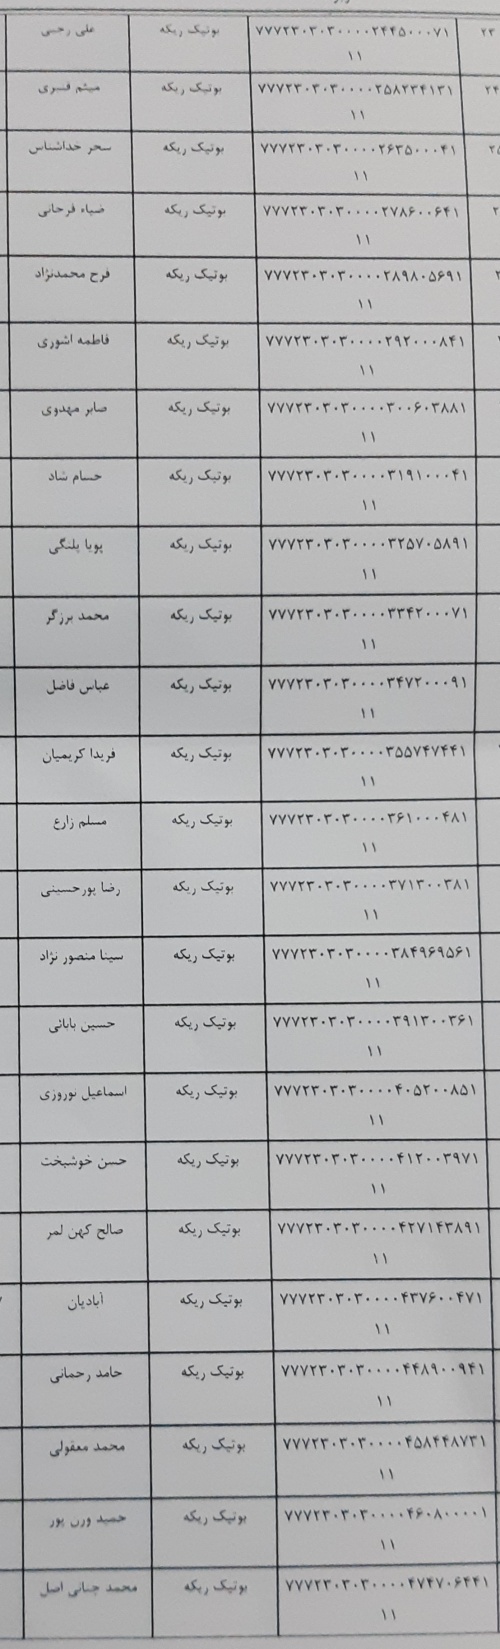 ۲۳ ۷۷۷۲۳۰۳۰۳۰۰۰۰۲۴۴۵۰۰۰۷۱ بوتیک ریکه علی رجبی
۱۱
۲۴ ۷۷۷۲۳۰۳۰۳۰۰۰۰۲۵۸۲۳۴۱۳۱ بوتیک ریکه میثم قسری
۱۱
۷۷۷۲۳۰۳۰۳۰۰۰۰۲۶۳۵۰۰۰۴۱ بوتیک ریکه سحر خداشناس
۱۱
۷۷۷۲۳۰۳۰۳۰۰۰۰۲۷۸۶۰۰۶۴۱ بوتیک ریکه ضیاء فرحانی
۱۱
۷۷۷۲۳۰۳۰۳۰۰۰۰۲۸۹۸۰۵۶۹۱ بوتیک ریکه فرح محمدنژاد
۱۱
۷۷۷۲۳۰۳۰۳۰۰۰۰۲۹۲۰۰۰۸۴۱ بوتیک ریکه فاطمه اشوری
۱۱
۷۷۷۲۳۰۳۰۳۰۰۰۰۳۰۰۶۰۳۸۸۱ بوتیک ریکه صابر مهدوی
۱۱
۷۷۷۲۳۰۳۰۳۰۰۰۰۳۱۹۱۰۰۰۴۱ بوتیک ریکه حسام شاد
۱۱
۷۷۷۲۳۰۳۰۳۰۰۰۰۳۲۵۷۰۵۸۹۱ بوتیک ریکه پویا پلنگی
۱۱
۷۷۷۲۳۰۳۰۳۰۰۰۰۳۳۴۲۰۰۰۷۱ بوتیک ریکه محمد برزگر
۱۱
۷۷۷۲۳۰۳۰۳۰۰۰۰۳۴۷۲۰۰۰۹۱ بوتیک ریکه عباس فاضل
۱۱
۷۷۷۲۳۰۳۰۳۰۰۰۰۳۵۵۷۴۷۴۴۱ بوتیک ریکه فریدا کریمیان
۱۱
۷۷۷۲۳۰۳۰۳۰۰۰۰۳۶۱۰۰۰۴۸۱ بوتیک ریکه مسلم زارع
۱۱
۷۷۷۲۳۰۳۰۳۰۰۰۰۳۷۱۳۰۰۳۸۱ بوتیک ریکه رضا پورحسینی
۱۱
۷۷۷۲۳۰۳۰۳۰۰۰۰۳۸۴۹۶۹۵۶۱ بوتیک ریکه سینا منصور نژاد
۱۱
۷۷۷۲۳۰۳۰۳۰۰۰۰۳۹۱۳۰۰۳۶۱ بوتیک ریکه حسین بابائی
۱۱
۷۷۷۲۳۰۳۰۳۰۰۰۰۴۰۵۲۰۰۸۵۱ بوتیک ریکه اسماعیل نوروزی
۱۱
۷۷۷۲۳۰۳۰۳۰۰۰۰۴۱۲۰۰۳۹۷۱ بوتیک ریکه حسن خوشبخت
۱۱
۷۷۷۲۳۰۳۰۳۰۰۰۰۴۲۷۱۴۳۸۹۱ بوتیک ریکه صالح کهن لمر
۱۱
۷۷۷۲۳۰۳۰۳۰۰۰۰۴۳۷۶۰۰۴۷۱ بوتیک ریکه آبادیان
۱۱
۷۷۷۲۳۰۳۰۳۰۰۰۰۴۴۸۹۰۰۹۴۱ بوتیک ریکه حامد رحمانی
۱۱
۷۷۷۲۳۰۳۰۳۰۰۰۰۴۵۸۴۴۸۷۳۱ بوتیک ریکه محمد معقولی
۱۱
۷۷۷۲۳۰۳۰۳۰۰۰۰۴۶۰۸۰۰۰۰۱ بوتیک ریکه حمید ورن پور
۱۱
۷۷۷۲۳۰۳۰۳۰۰۰۰۴۷۴۷۰۶۴۴۱ بوتیک ریکه محمد جنانی اصل
۱۱